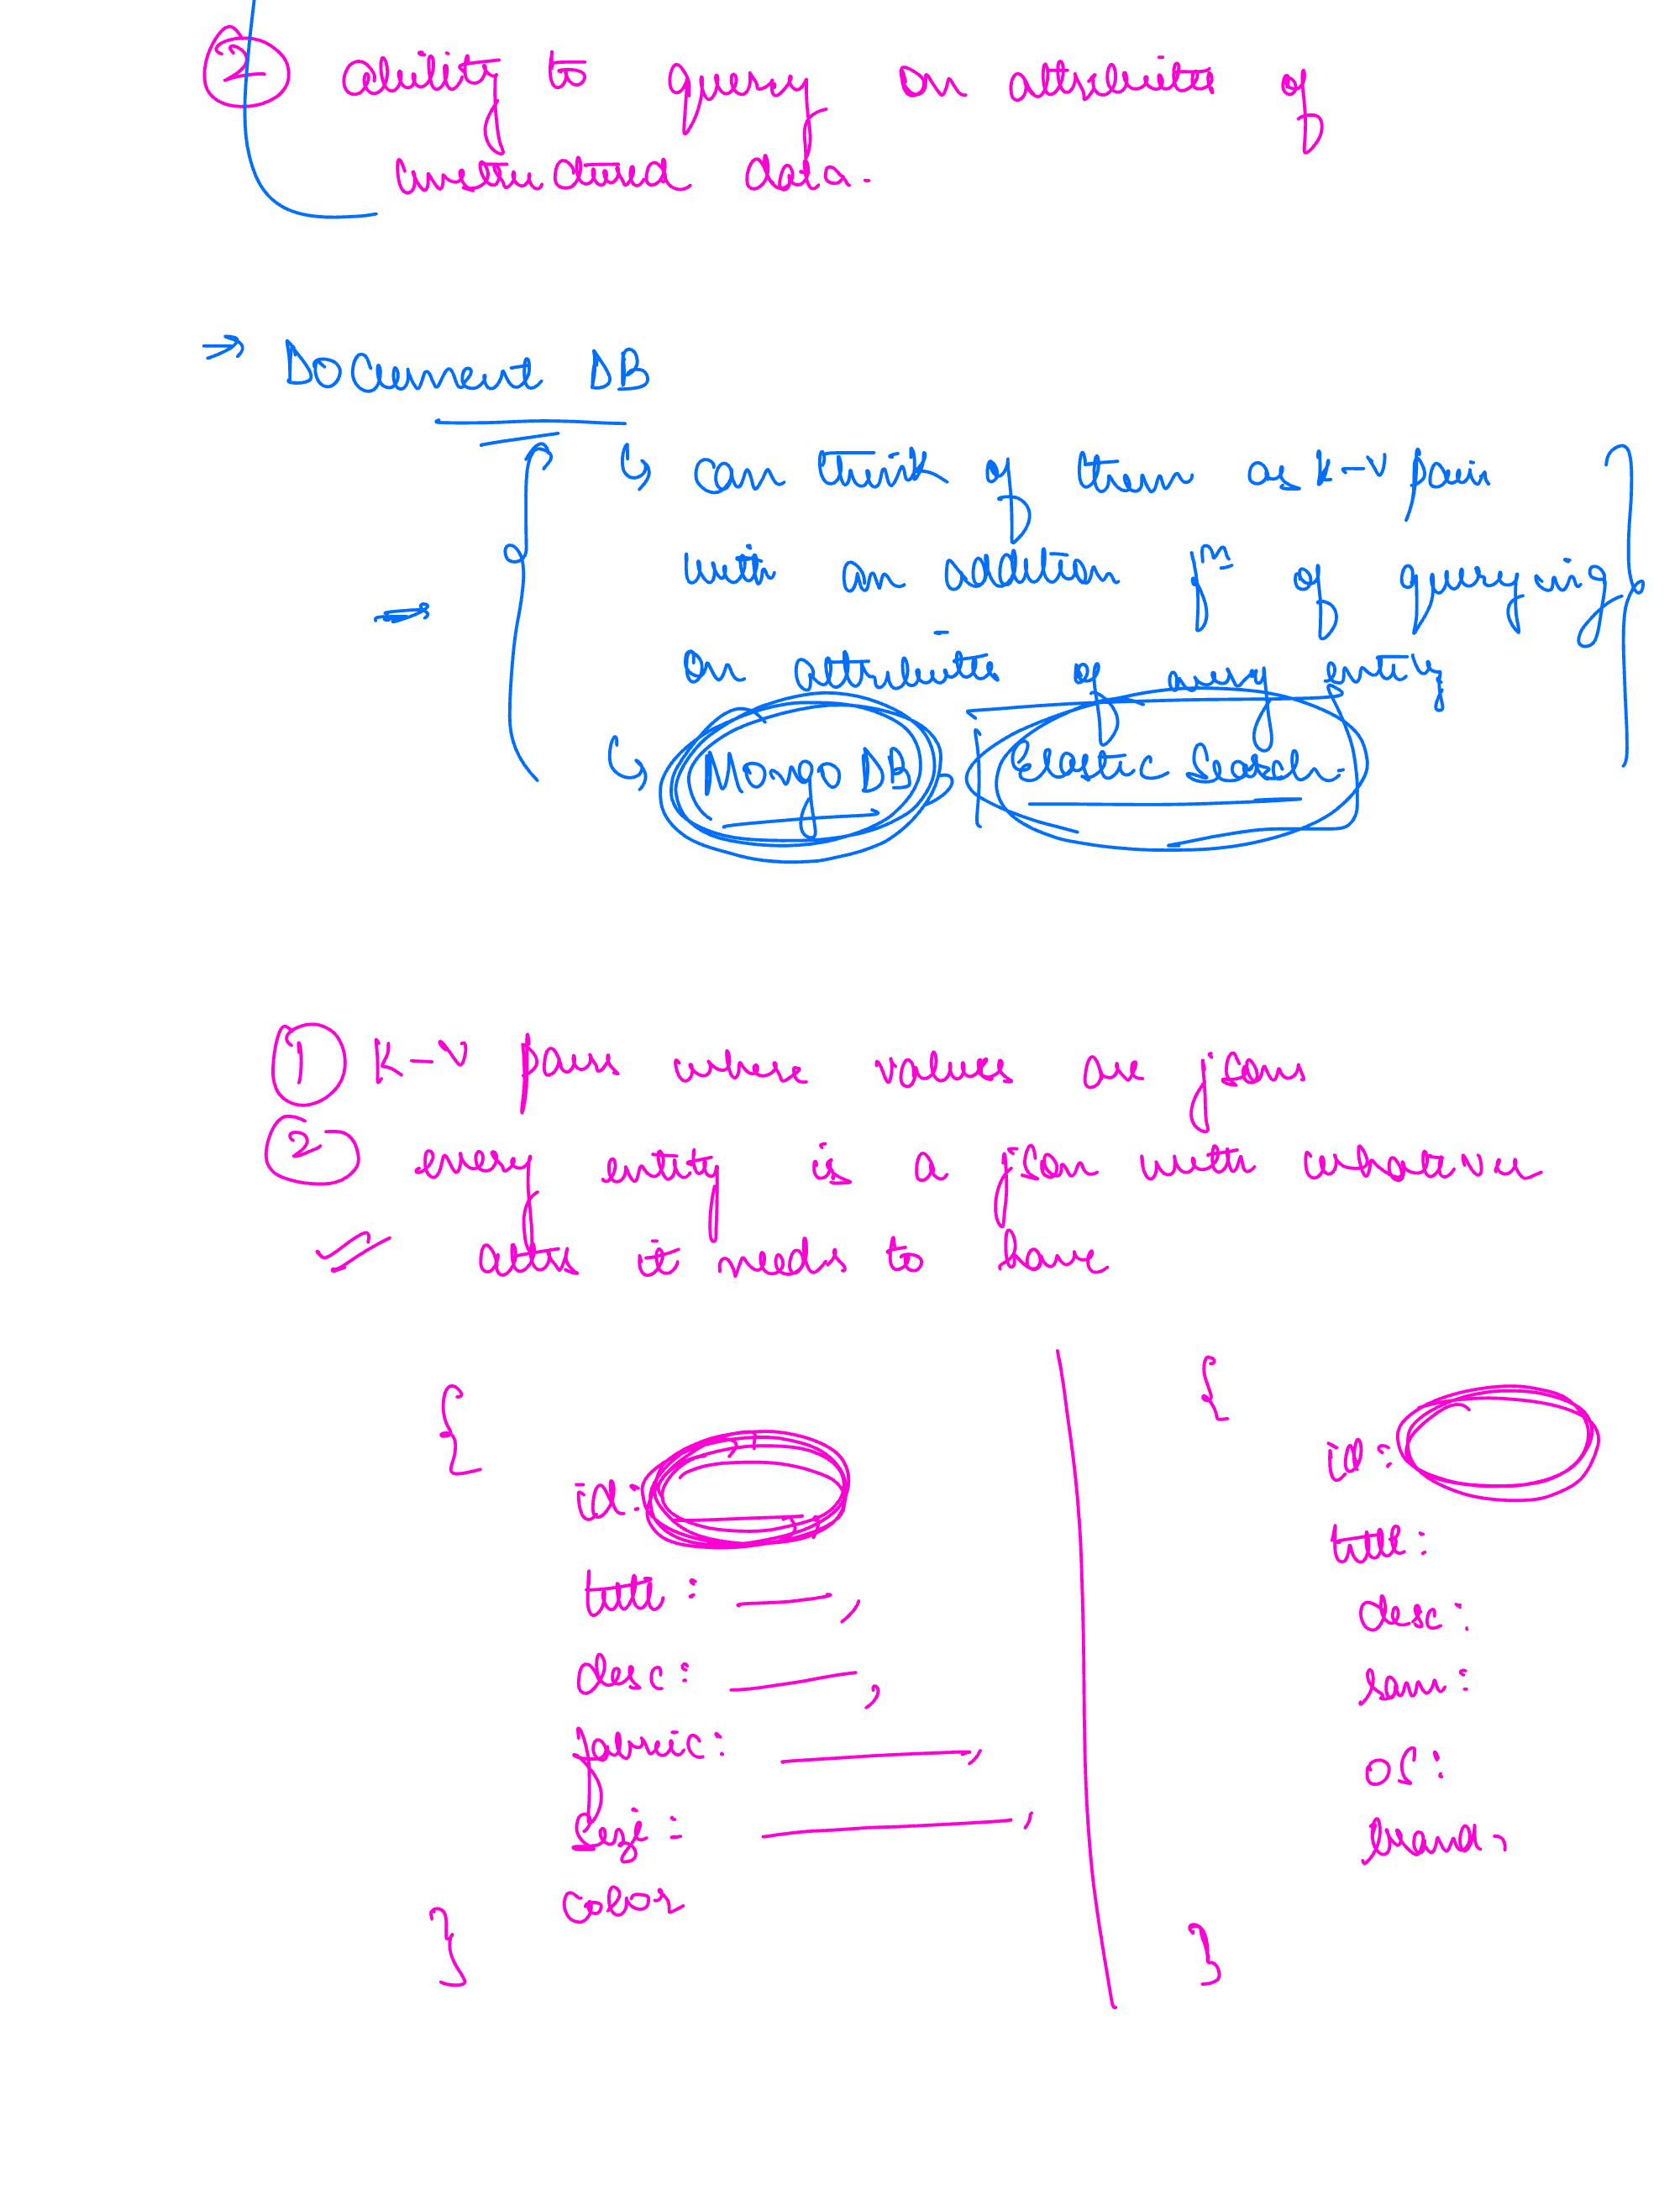 ② ability to query on attributes of
unstructured data.
→ Document DB
↳ can think of them as K-V pair
with an addition fⁿ of querying
→ on attributes of every entity
↳ MongoDB, Elastic Search.
① K-V pairs where values are jsons
② every entity is a json with whatever
attrs it needs to have
{
id:
title: ,
desc: ,
fabric: ,
Size: ,
color
}
{
id:
title:
desc:
ram:
OS:
brand:
}